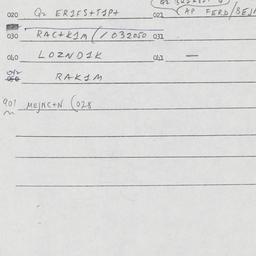 020 Qz ERIFS+TIP+ 021 (AP FERD/BEJA
030 RAC+KIM (/032050 031
040 LOZNDIK 041 —
RAKIM
901 MEJNC+N (028